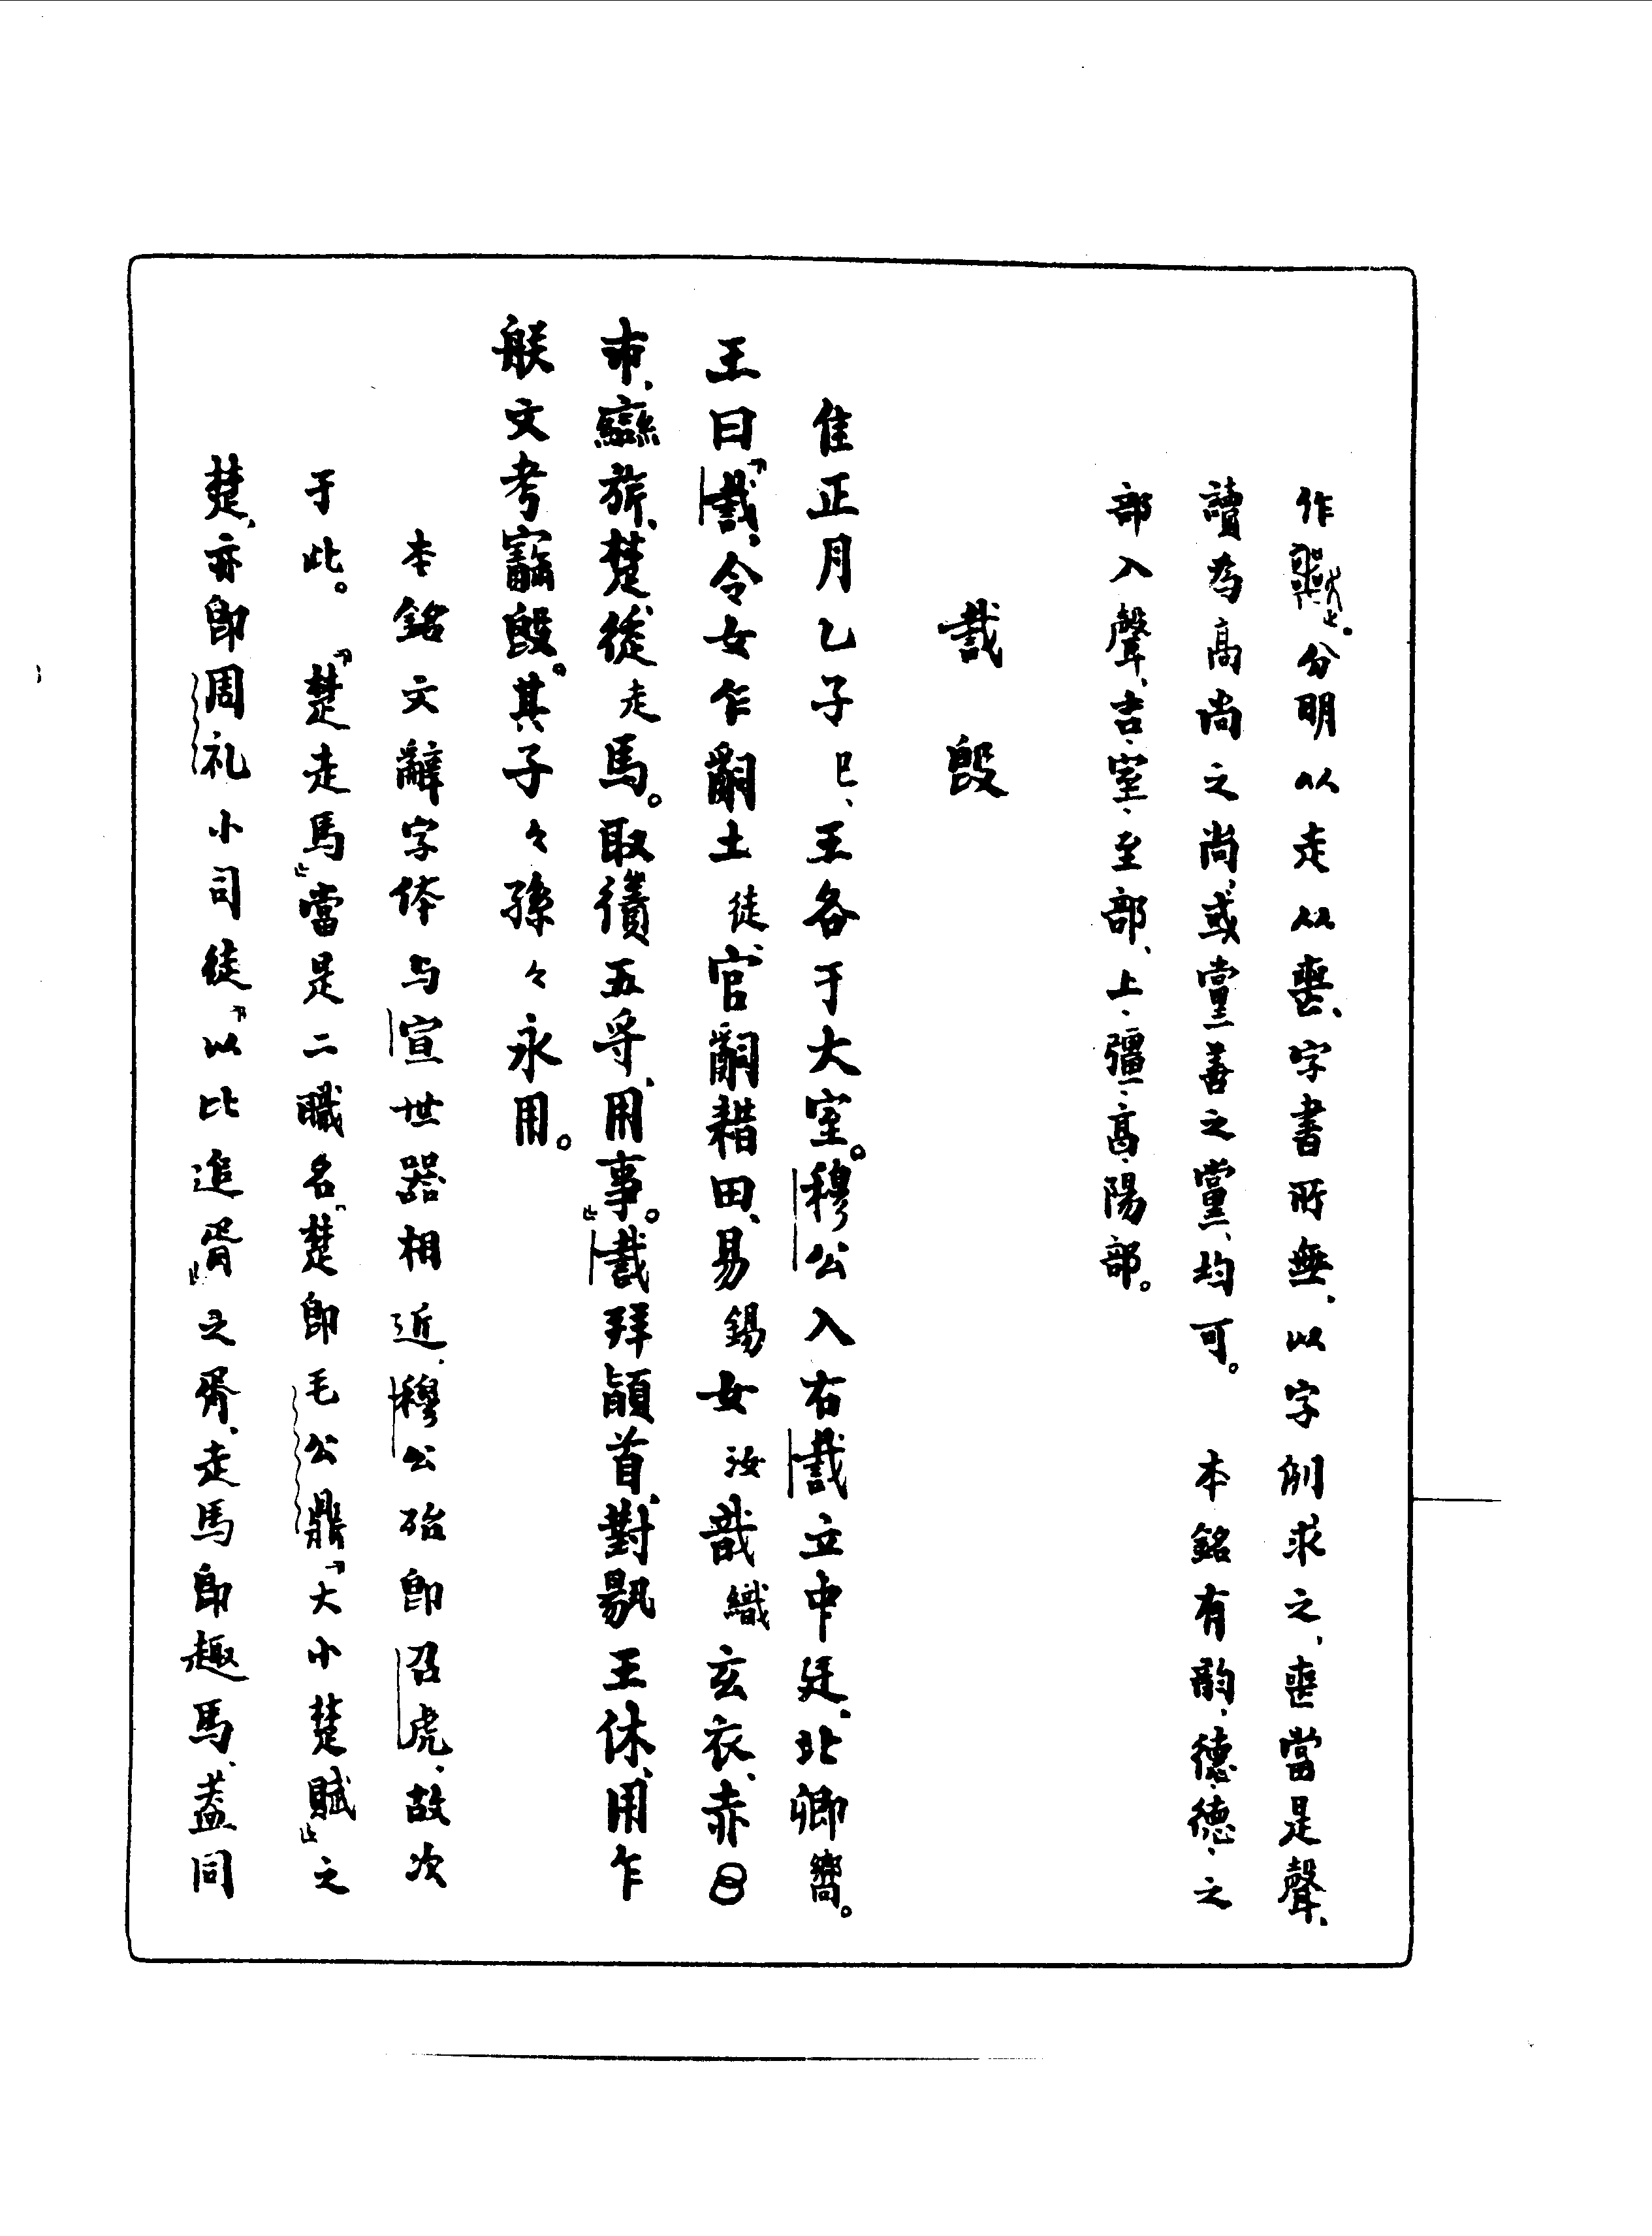 作。分明以走从喪、字書所無、以字例求之、喪當是聲、
讀為高尚之尚、或黨善之黨、均可。 本銘有韵、德、德、之
部入聲、吉、室、至部、上、彊、高、陽部。
𢨋𣪘
隹正月乙子巳、王各于大室。穆公入右𢨋立中廷、北卿嚮。
王曰「𢨋、令女乍𤔲土徒、官𤔲耤田、易錫女汝戠織玄衣、赤🝆
巿、䜌旂、楚徒走馬。取徵五寽、用事。」𢨋拜䭫首、對𩛥王休、用乍
朕文考寶𣪘。其子々孫々永用。
本銘文辭字体与宣世器相近、穆公殆即召虎、故次
于此。 「楚走馬」當是二職名、楚即毛公鼎「大小楚賦」之
楚、亦即周礼小司徒「以比追胥」之胥、走馬即趣馬、蓋同